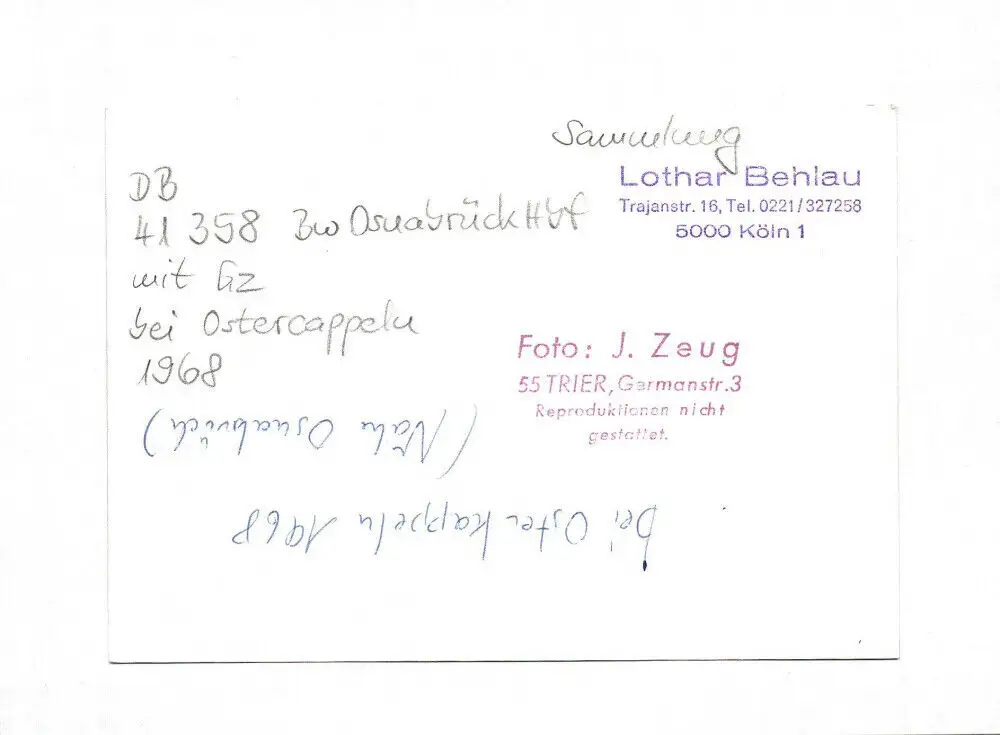 Sammlung
Lothar Behlau
Trajanstr. 16, Tel. 0221/327258
5000 Köln 1
DB
41 358 Bw Osnabrück Hbf
mit Gz
bei Ostercappeln
1968
Foto: J. Zeug
55 TRIER, Germanstr. 3
Reproduktionen nicht
gestattet.
bei Osterkappeln 1968
(Nähe Osnabrück)